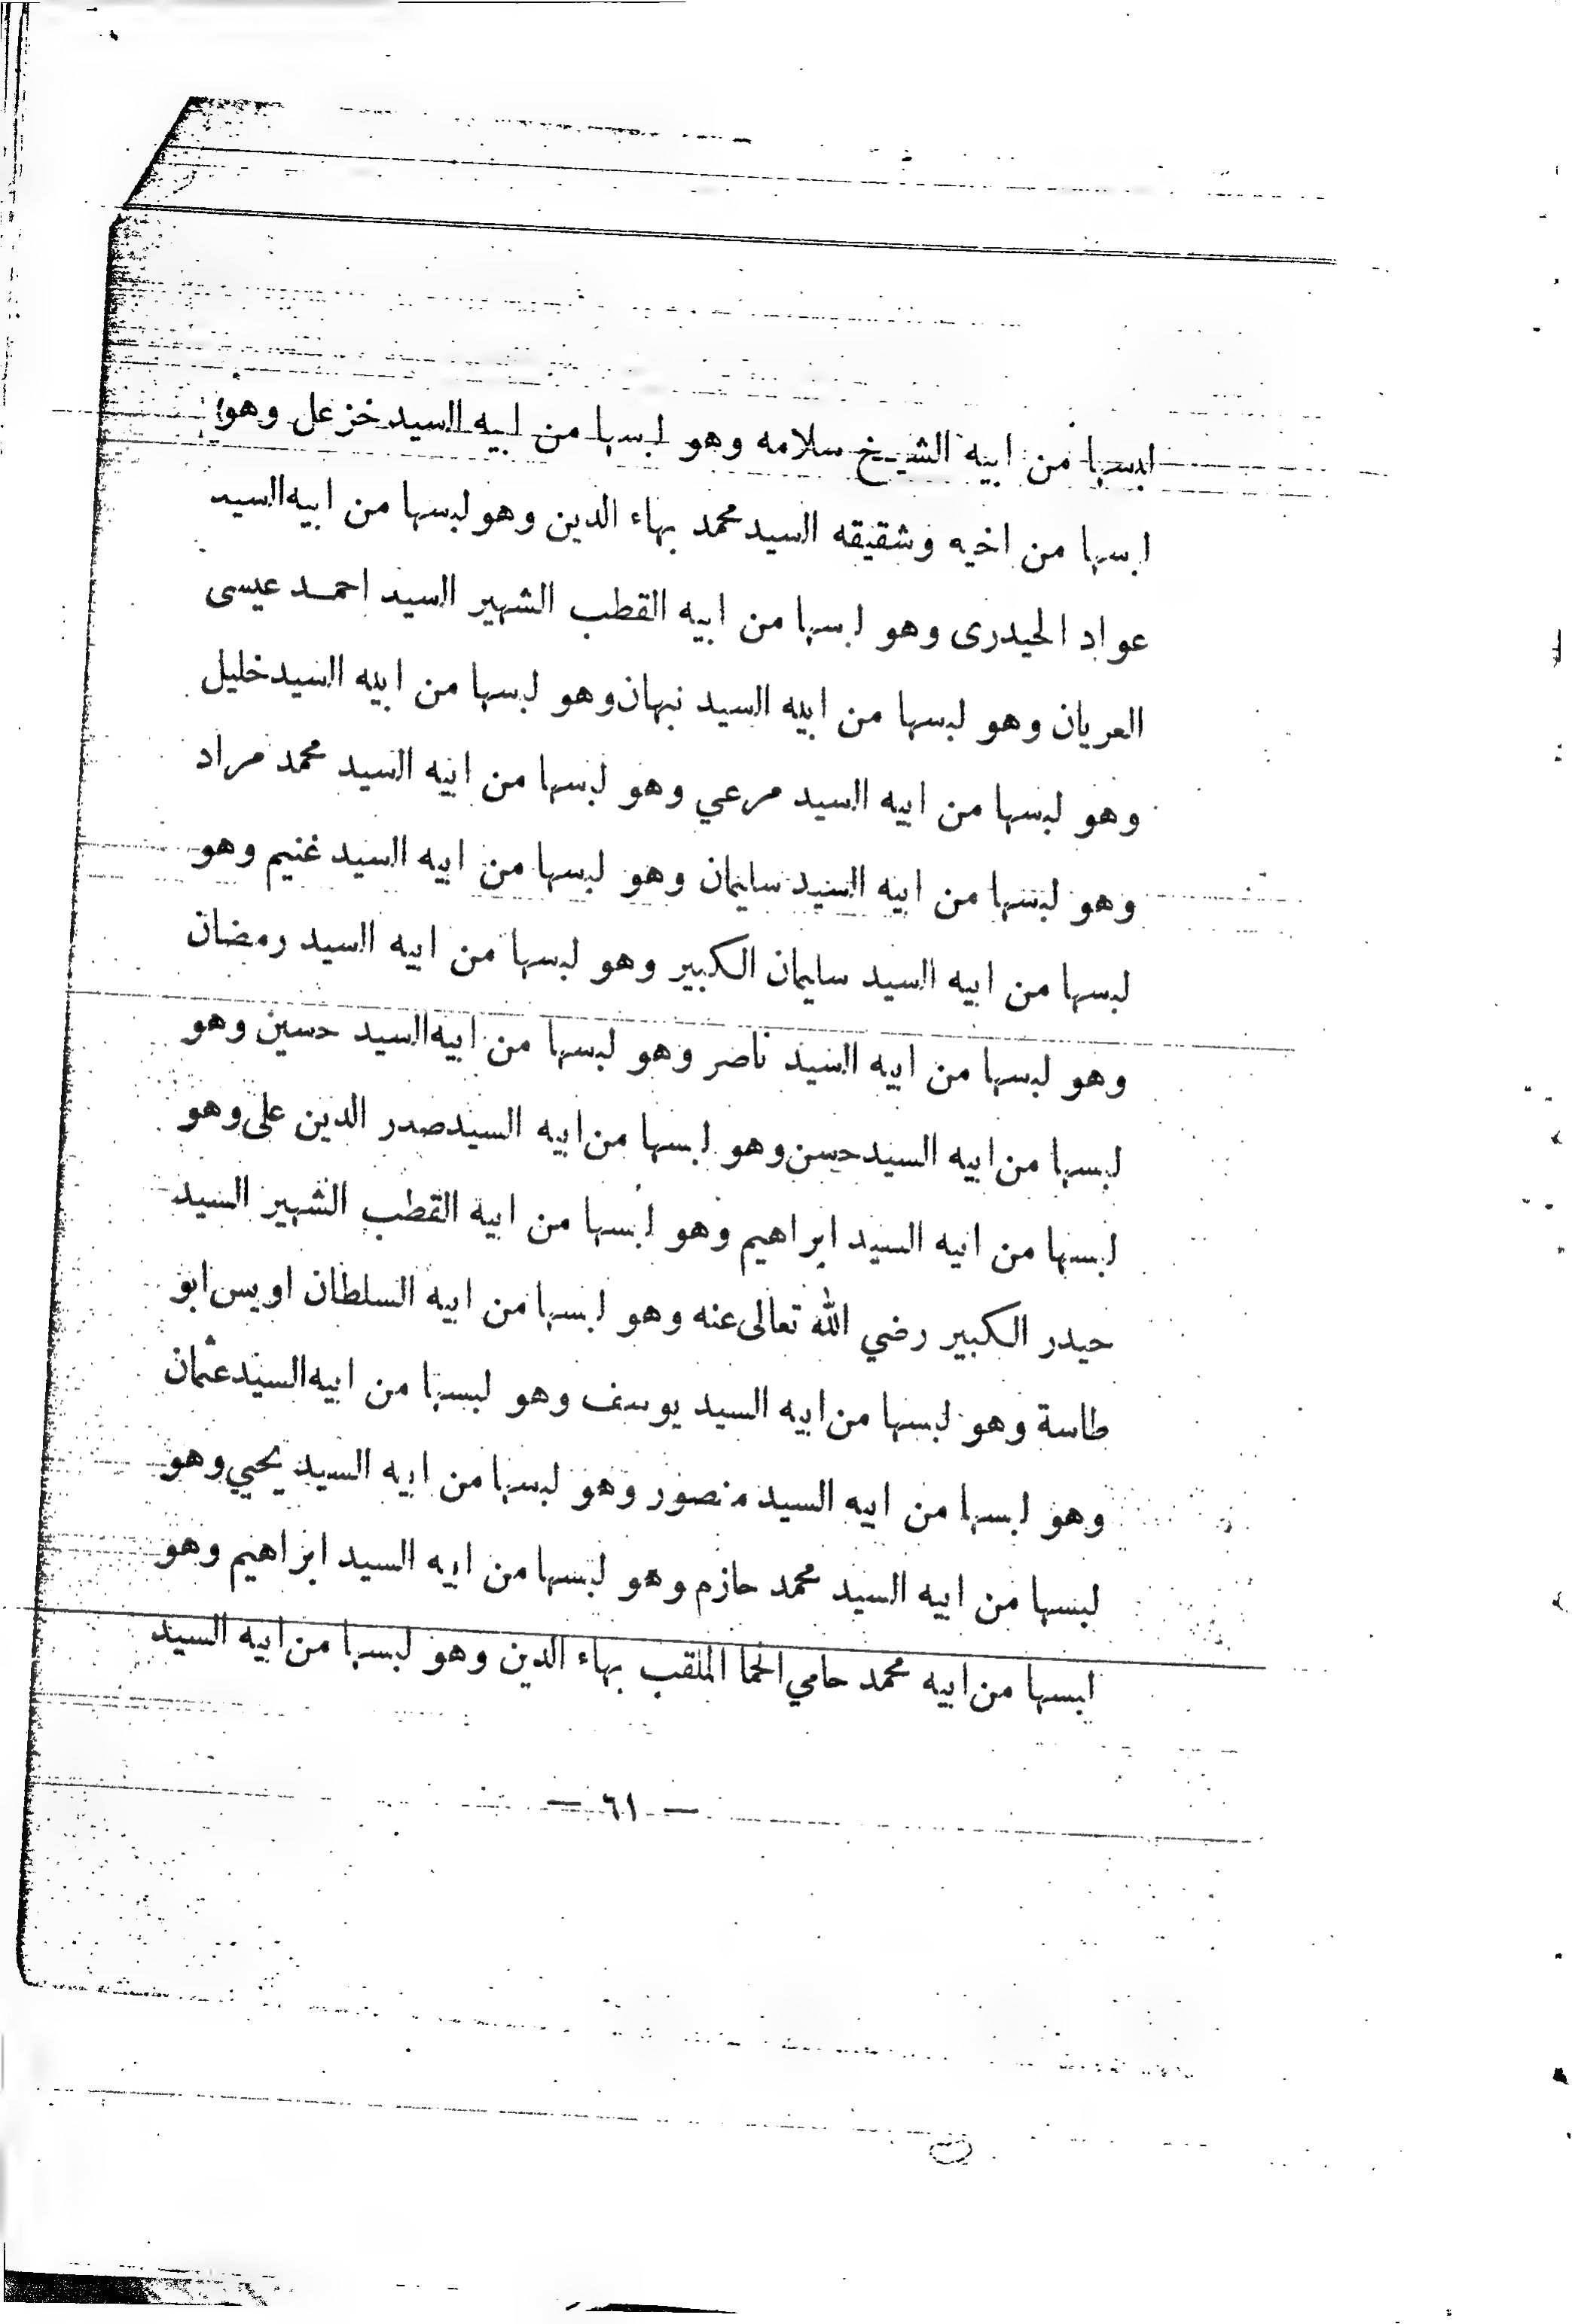 لبسها من ابيه الشيخ سلامه وهو لبسها من ابيه السيد خزعل وهو
لبسها من اخيه وشقيقه السيد محمد بهاء الدين وهو لبسها من ابيه السيد
عواد الحيدرى وهو لبسها من ابيه القطب الشهير السيد احمد عيسى
العريان وهو لبسها من ابيه السيد نبهان وهو لبسها من ابيه السيد خليل
وهو لبسها من ابيه السيد مرعي وهو لبسها من ابيه السيد محمد مراد
وهو لبسها من ابيه السيد سليمان وهو لبسها من ابيه السيد غنيم وهو
لبسها من ابيه السيد سليمان الكبير وهو لبسها من ابيه السيد رمضان
وهو لبسها من ابيه السيد ناصر وهو لبسها من ابيه السيد حسين وهو
لبسها من ابيه السيد حسن وهو لبسها من ابيه السيد صدر الدين على وهو
لبسها من ابيه السيد ابراهيم وهو لبسها من ابيه القطب الشهير السيد
حيدر الكبير رضي الله تعالى عنه وهو لبسها من ابيه السلطان اويس ابو
طاسة وهو لبسها من ابيه السيد يوسف وهو لبسها من ابيه السيد عثمان
وهو لبسها من ابيه السيد منصور وهو لبسها من ابيه السيد يحيي وهو
لبسها من ابيه السيد محمد حازم وهو لبسها من ابيه السيد ابراهيم وهو
لبسها من ابيه محمد حامي الحما الملقب بهاء الدين وهو لبسها من ابيه السيد
— ٦١ —